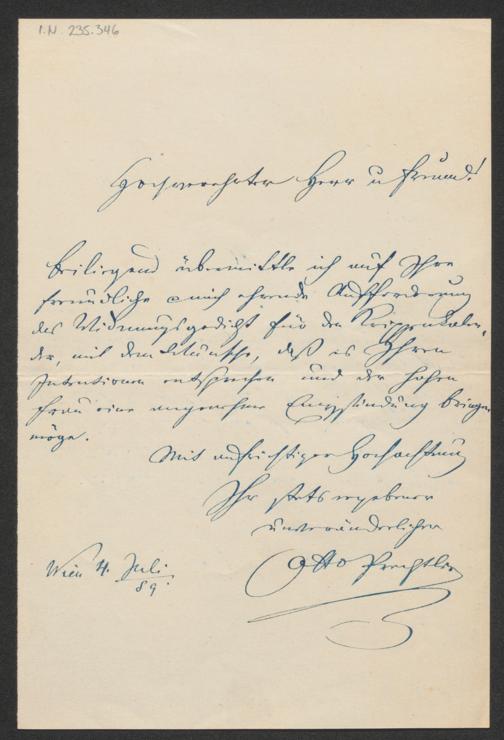 I.N. 235.346
Hochverehrter Herr u Freund!
Beiliegend übermittle ich auf Ihre
freundliche u mich ehrende Aufforderung
das Widmungsgedicht für den Krippenkalen-
der, mit dem Wunsche, daß es Ihren
Intentionen entsprechen und der hohen
Frau eine angenehme Empfindung bringen
möge.
Mit aufrichtiger Hochachtung
Ihr stets ergebener
unveränderlicher
Otto Prechtler
Wien 4. Juli